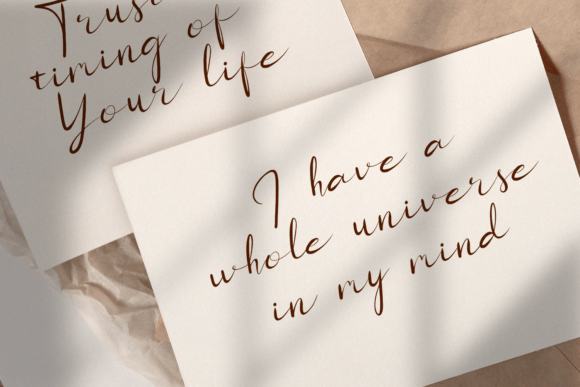 Trus
timing of
Your life
I have a
whole universe
in my mind